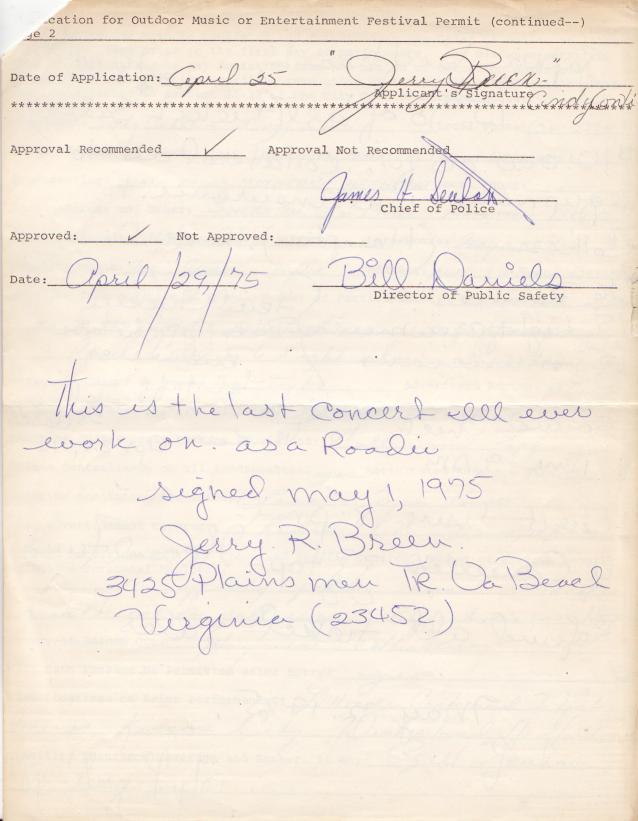 cation for Outdoor Music or Entertainment Festival Permit (continued--)
ge 2
Date of Application: April 25 "Jerry Breen"
Applicant's Signature Cindy Conti
****************************************************************************
Approval Recommended ✓ Approval Not Recommended
James H.
Chief of Police
Approved: ✓ Not Approved:
Date: April/29/75 Bill Daniels
Director of Public Safety
This is the last concert Ill ever
work on. as a Roadie
signed may 1, 1975
Jerry R. Breen.
3425 Plains men TR. Va Beach
Virginia (23452)